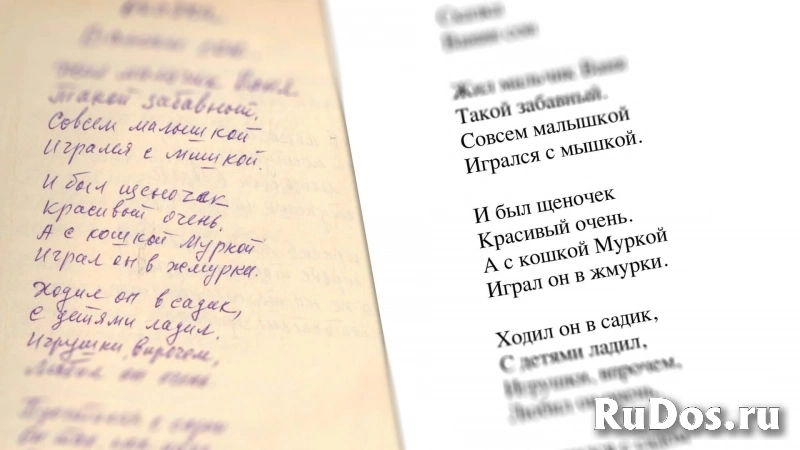 Жил мальчик Ваня
Такой забавный.
Совсем малышкой
Игрался с мышкой.
И был щеночек
Красивый очень.
А с кошкой Муркой
Играл он в жмурки.
Ходил он в садик,
С детями ладил.
Игрушки, впрочем,
Сказка
Ванин сон
Жил мальчик Ваня
Такой забавный.
Совсем малышкой
Игрался с мышкой.
И был щеночек
Красивый очень.
А с кошкой Муркой
Играл он в жмурки.
Ходил он в садик,
С детями ладил,
Игрушки, впрочем,
Любил он очень.
RuDos.ru